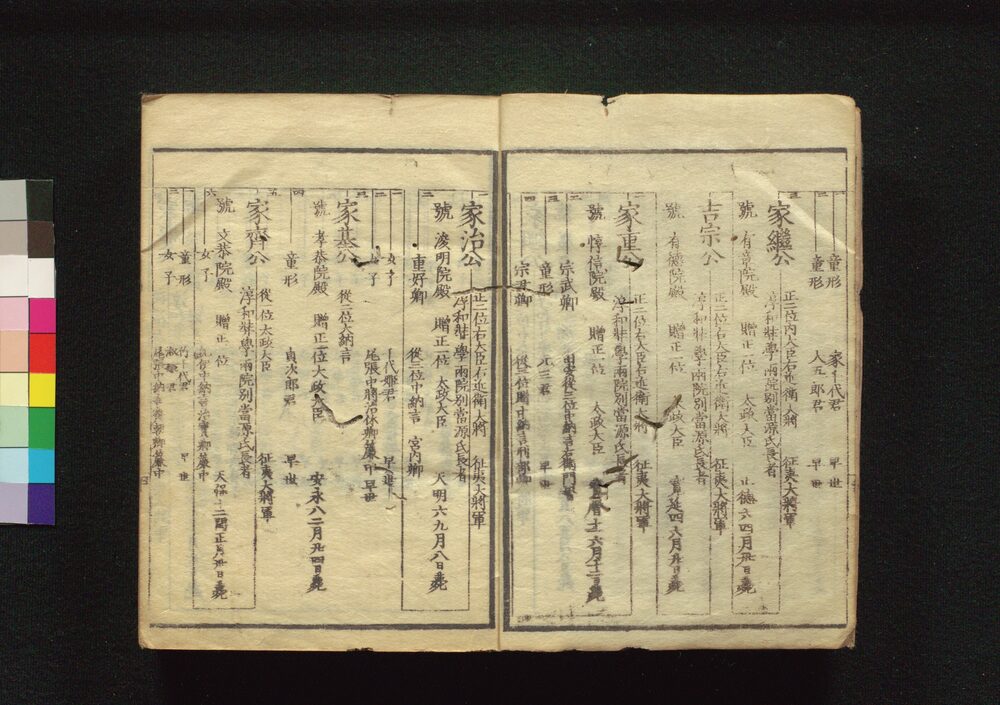 童形 家千代君 早世
童形 人五郎君 早世
家繼公 正二位内大臣右近衛大將 征夷大將軍
淳和奘學兩院別當源氏長者
號 有章院殿 贈正一位 太政大臣 正德六四月卅日薨
吉宗公 正二位右大臣右近衛大將 征夷大將軍
淳和奘學兩院別當源氏長者
號 有德院殿 贈正一位 太政大臣 寬延四六月廿日薨
家重公 正二位右大臣右近衛大將 征夷大將軍
淳和奘學兩院別當源氏長者
號 惇信院殿 贈正一位 太政大臣 寶曆十一六月十二日薨
宗武卿
童形 早世
宗尹卿
家治公 正二位右大臣右近衛大將 征夷大將軍
淳和奘學兩院別當源氏長者
號 浚明院殿 贈正一位 太政大臣 天明六九月八日薨
重好卿 從三位中納言 宮内卿
女子 千代姫君 早世
女子 尾張中將治休卿簾中 早世
家基公 從二位大納言
號 孝恭院殿 贈正一位太政大臣 安永八二月廿四日薨
童形 貞次郎君 早世
家齊公 從一位太政大臣 征夷大將軍
淳和奘學兩院別當源氏長者
號 文恭院殿 贈正一位 天保十二閏正月卅日薨
女子
童形 竹千代君 早世
女子